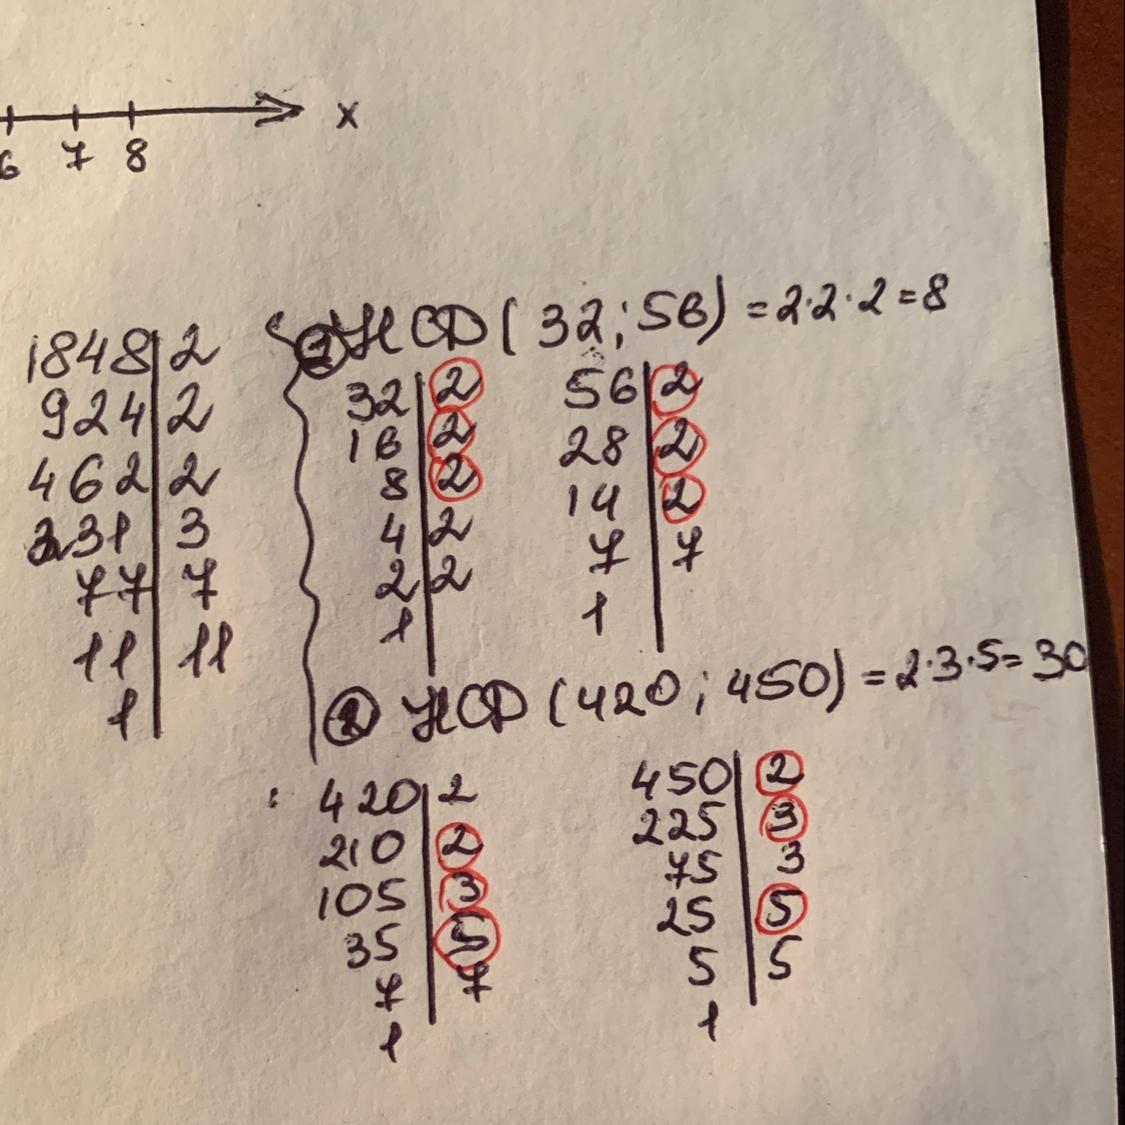 x
6 7 8
1848 | 2
924 | 2
462 | 2
231 | 3
77 | 7
11 | 11
1
① НСД (32; 56) = 2·2·2 = 8
32 | 2
16 | 2
8 | 2
4 | 2
2 | 2
1
56 | 2
28 | 2
14 | 2
7 | 7
1
② НСД (420; 450) = 2·3·5 = 30
420 | 2
210 | 2
105 | 3
35 | 5
7 | 7
1
450 | 2
225 | 3
75 | 3
25 | 5
5 | 5
1